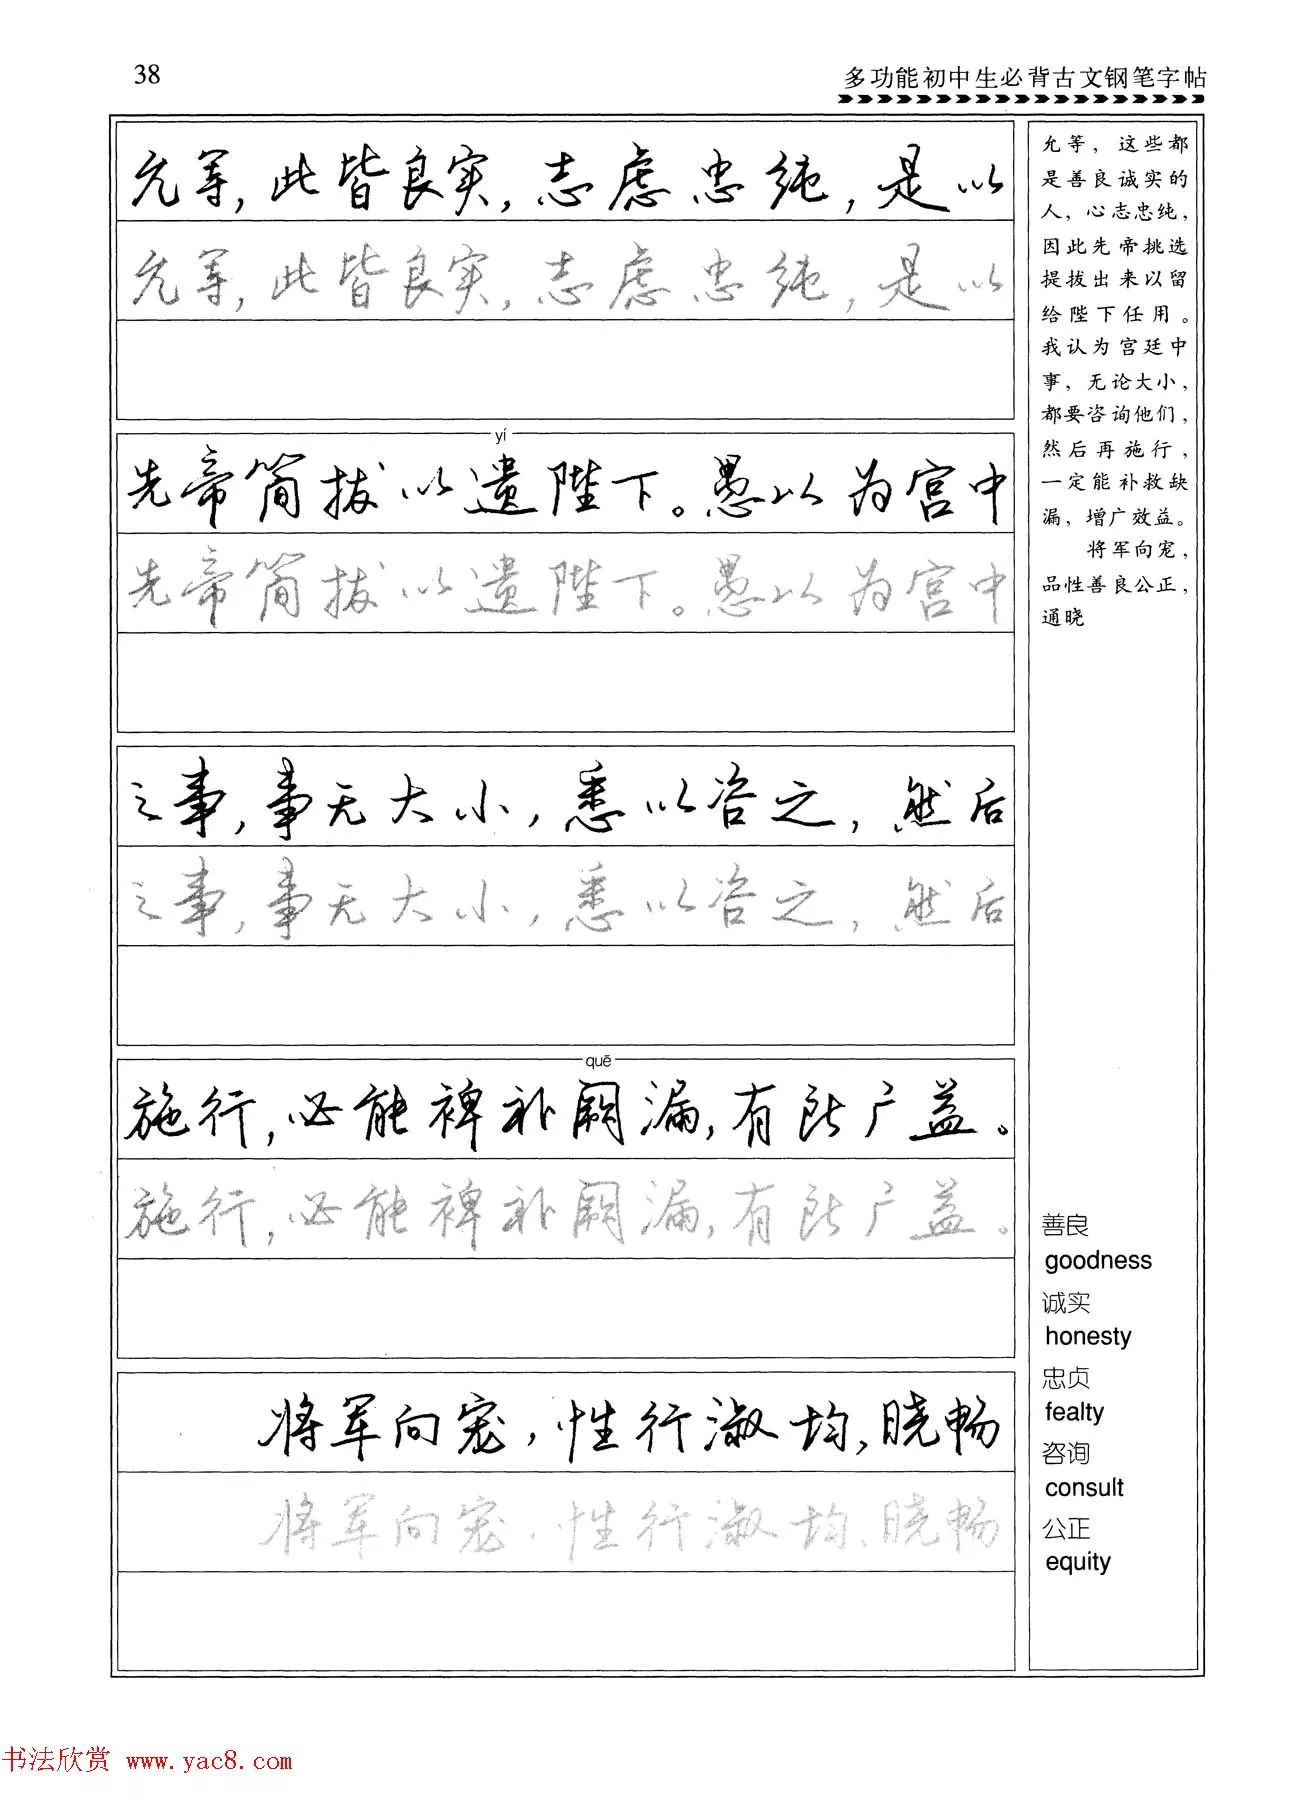 38
多功能初中生必背古文钢笔字帖
允等,此皆良实,志虑忠纯,是以
允等,此皆良实,志虑忠纯,是以
yí
先帝简拔以遗陛下。愚以为宫中
先帝简拔以遗陛下。愚以为宫中
之事,事无大小,悉以咨之,然后
之事,事无大小,悉以咨之,然后
quē
施行,必能裨补阙漏,有所广益。
施行,必能裨补阙漏,有所广益。
将军向宠,性行淑均,晓畅
将军向宠,性行淑均,晓畅
允等,这些都
是善良诚实的
人,心志忠纯,
因此先帝挑选
提拔出来以留
给陛下任用。
我认为宫廷中
事,无论大小,
都要咨询他们,
然后再施行,
一定能补救缺
漏,增广效益。
将军向宠,
品性善良公正,
通晓
善良
goodness
诚实
honesty
忠贞
fealty
咨询
consult
公正
equity
书法欣赏 www.yac8.com